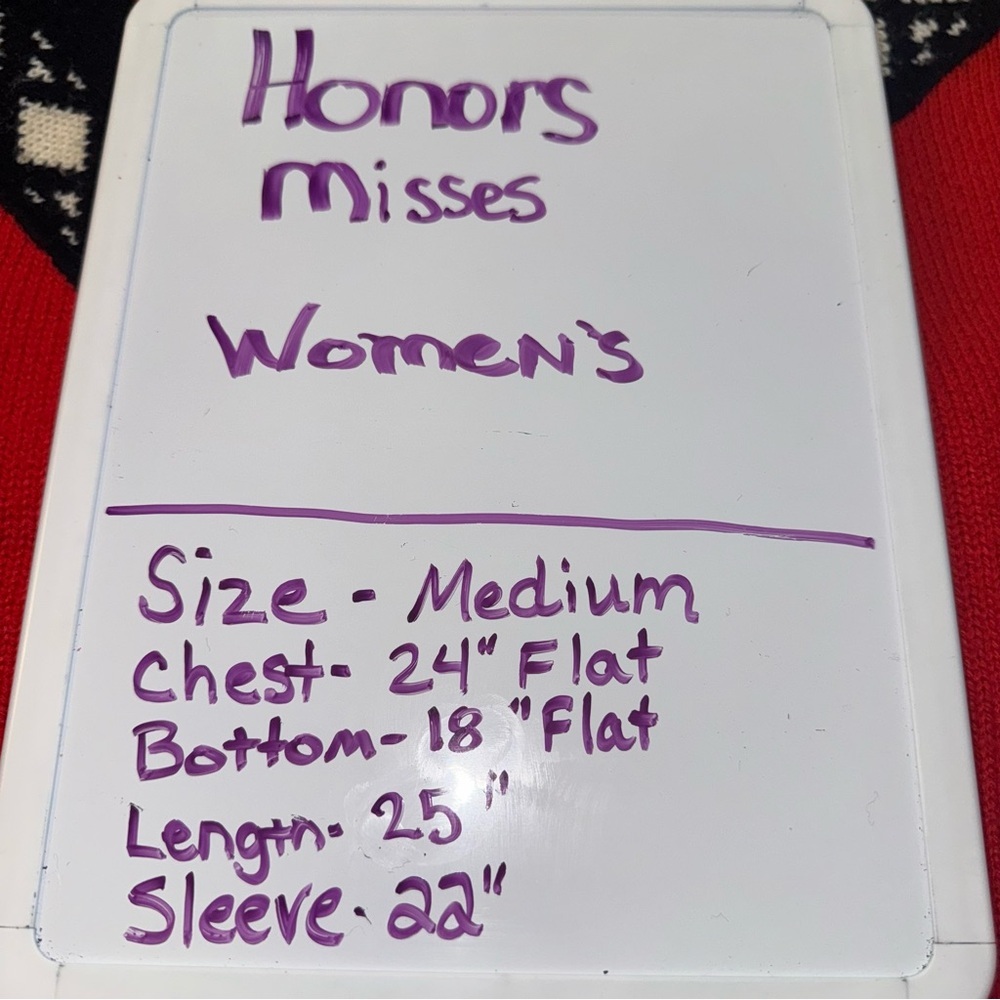 Honors
Misses
Women's
Size - Medium
Chest- 24" Flat
Bottom- 18 "Flat
Length- 25"
Sleeve- 22"